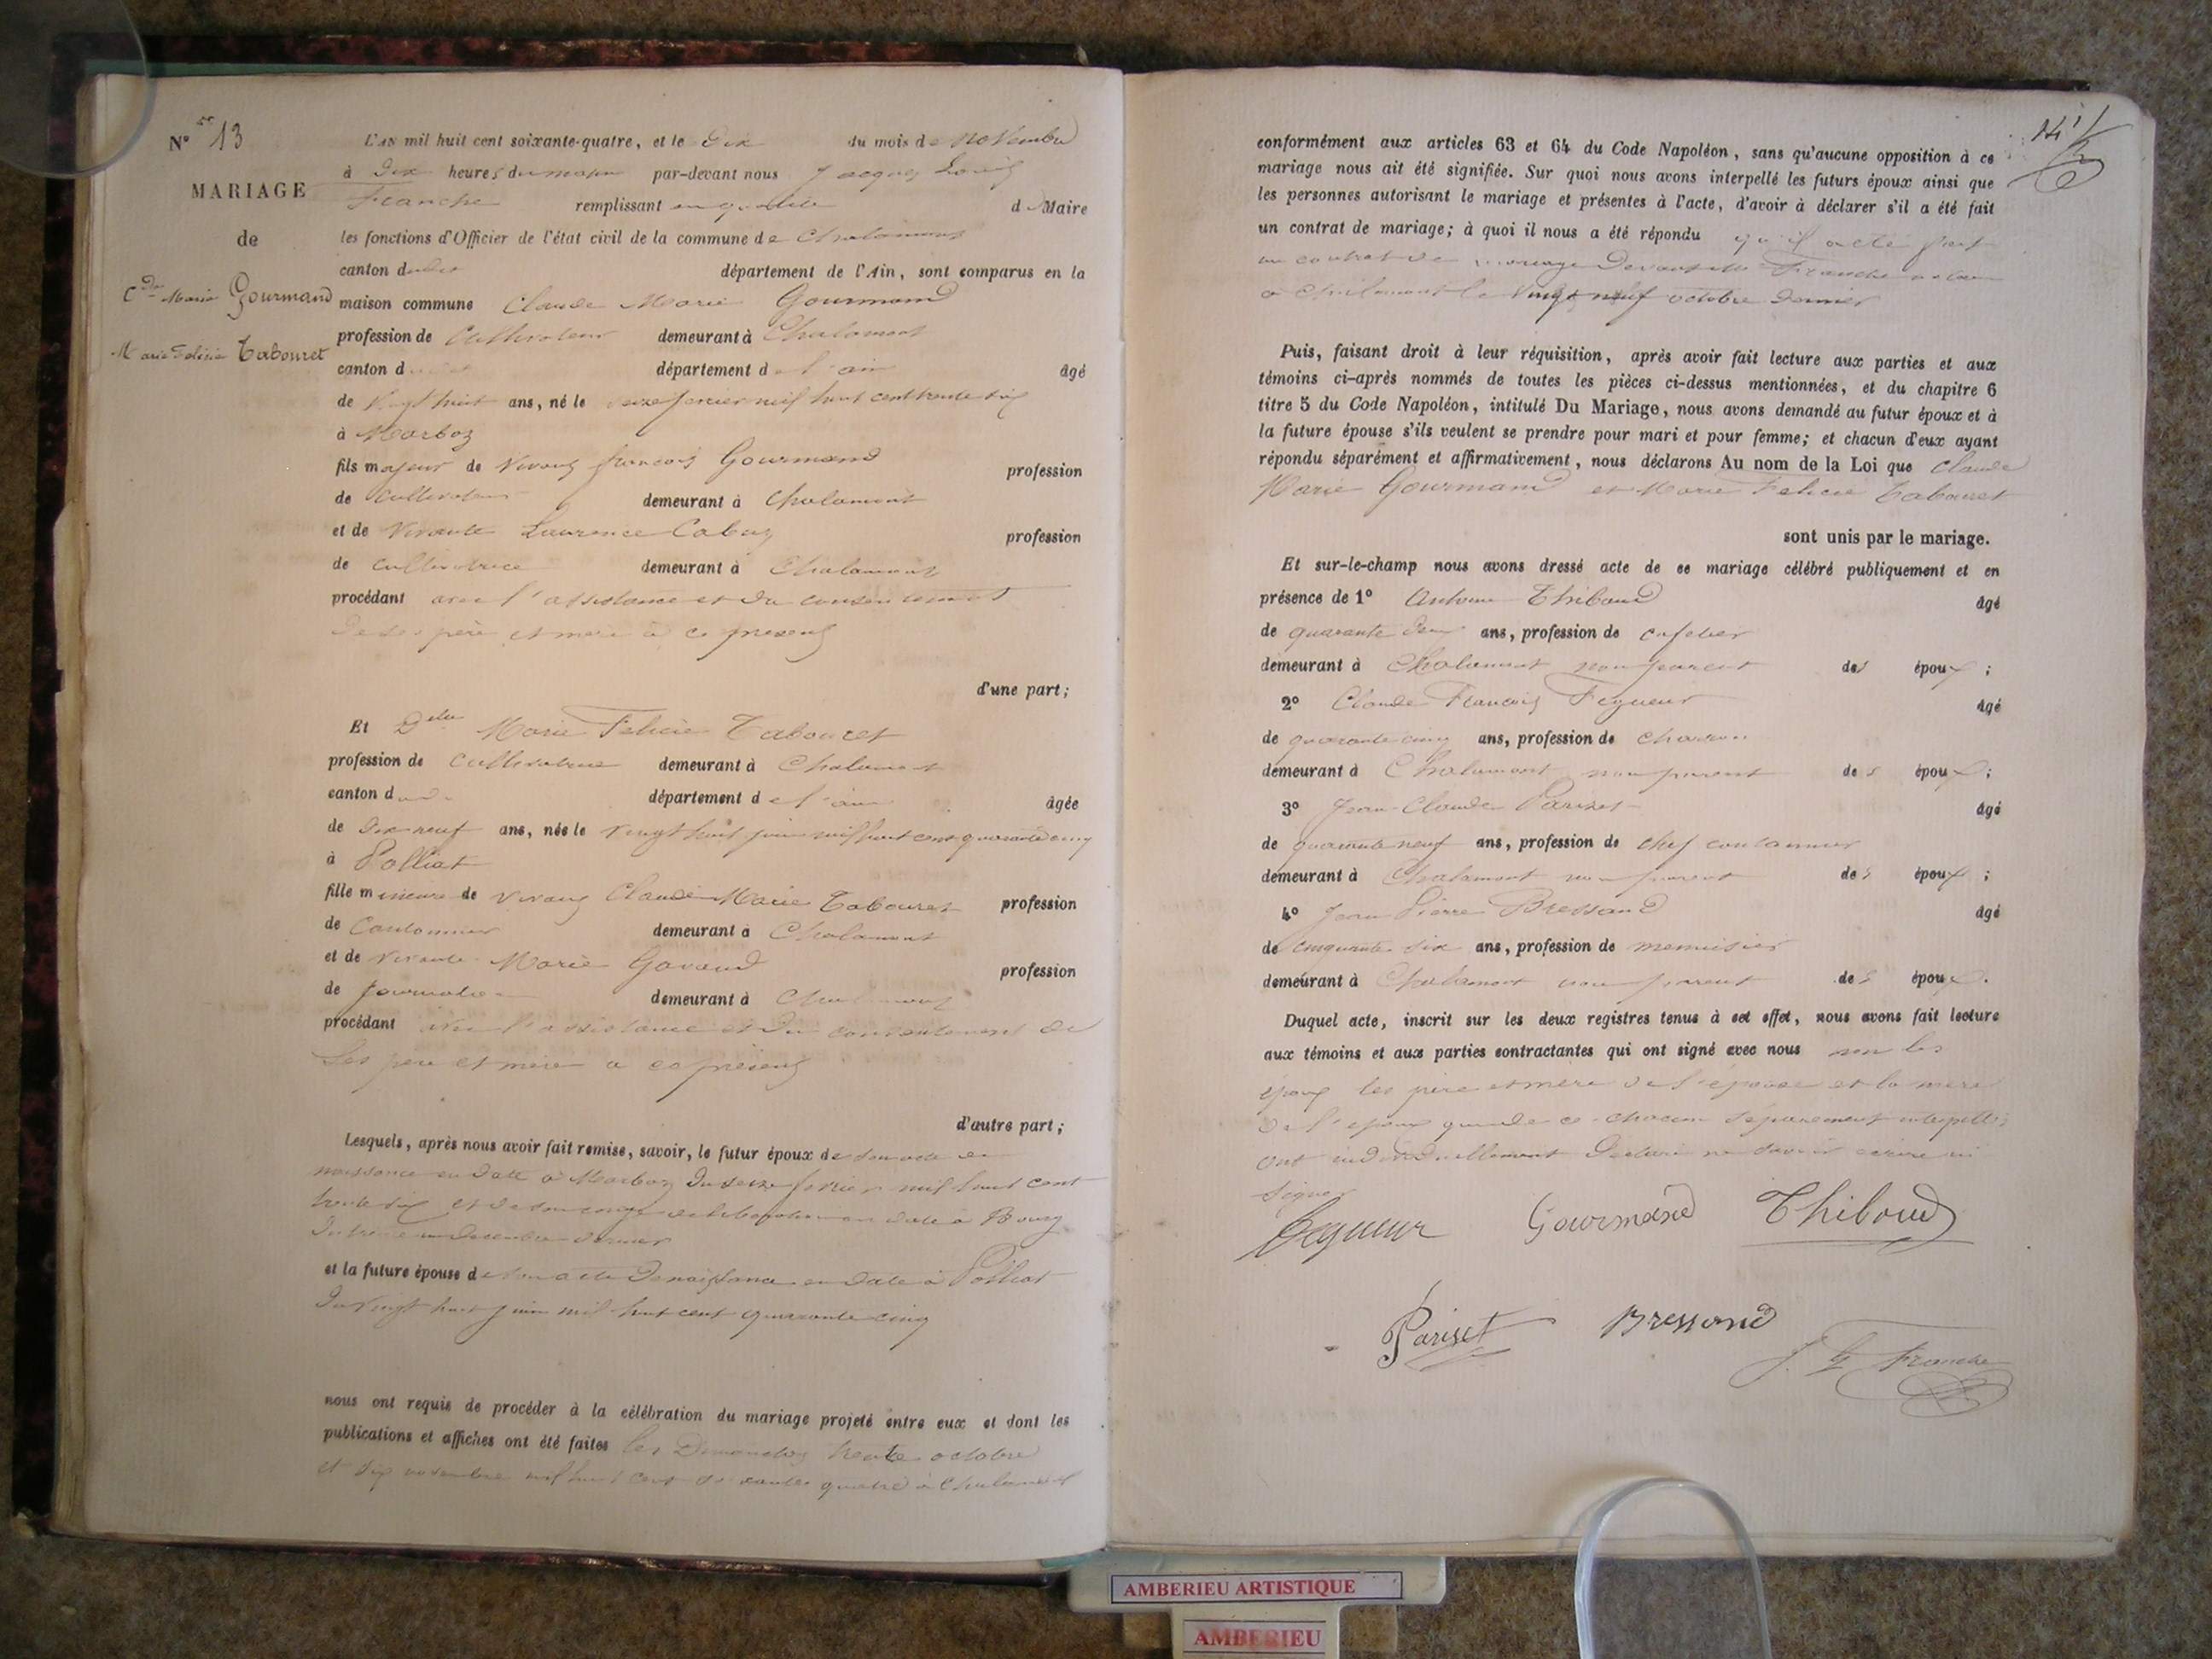 N° 13
MARIAGE
de
Cde Marie Gourmand
Marie Felicie Tabouret
L'AN mil huit cent soixante-quatre, et le Dix du mois de novembre
à Dix heures du matin par-devant nous Jacques Louis
Franche remplissant en qualité de Maire
les fonctions d'Officier de l'état civil de la commune de Chalamont
canton dudit département de l'Ain, sont comparus en la
maison commune Claude Marie Gourmand
profession de Cultivateur demeurant à Chalamont
canton dudit département de l'ain âgé
de Vingt huit ans, né le seize fevrier mil huit cent trente six
à Marboz
fils majeur de Vivans françois Gourmand profession
de Cultivateur demeurant à Chalamont
et de Vivante Laurence Cabuz profession
de Cultivatrice demeurant à Chalamont
procédant avec l'assistance et du consentement
de ses père et mère à ce présens
d'une part;
Et Dlle Marie Felicie Tabouret
profession de Cultivatrice demeurant à Chalamont
canton dudit département de l'ain âgée
de Dix neuf ans, née le Vingt huit juin mil huit cent quarante cinq
à Polliat
fille mineure de vivans Claude Marie Tabouret profession
de Cantonnier demeurant à Chalamont
et de Vivante Marie Gavand profession
de journalière demeurant à Chalamont
procédant avec l'assistance et du consentement de
ses père et mère a ce présens
d'autre part;
Lesquels, après nous avoir fait remise, savoir, le futur époux de son acte de
naissance en date à Marboz du seize fevrier mil huit cent
trente six et de son congé de libération en date à Bourg
du trente un Decembre dernier
et la future épouse de son acte de naissance en date à Polliat
du Vingt huit juin mil huit cent quarante cinq
nous ont requis de procéder à la célébration du mariage projeté entre eux et dont les
publications et affiches ont été faites les Dimanches trente octobre
et six novembre mil huit cent soixante quatre à Chalamont
14
conformément aux articles 63 et 64 du Code Napoléon, sans qu'aucune opposition à ce
mariage nous ait été signifiée. Sur quoi nous avons interpellé les futurs époux ainsi que
les personnes autorisant le mariage et présentes à l'acte, d'avoir à déclarer s'il a été fait
un contrat de mariage; à quoi il nous a été répondu qu'il a été fait
un contrat de mariage devant Franche notaire
à Chalamont le Vingt neuf octobre dernier
Puis, faisant droit à leur réquisition, après avoir fait lecture aux parties et aux
témoins ci-après nommés de toutes les pièces ci-dessus mentionnées, et du chapitre 6
titre 5 du Code Napoléon, intitulé Du Mariage, nous avons demandé au futur époux et à
la future épouse s'ils veulent se prendre pour mari et pour femme; et chacun d'eux ayant
répondu séparément et affirmativement, nous déclarons Au nom de la Loi que Claude
Marie Gourmand et Marie Felicie Tabouret
sont unis par le mariage.
Et sur-le-champ nous avons dressé acte de ce mariage célébré publiquement et en
présence de 1° Antoine Thiboud âgé
de quarante deux ans, profession de cafetier
demeurant à Chalamont non parent des époux ;
2° Claude François Fegueur âgé
de quarante cinq ans, profession de charron
demeurant à Chalamont non parent des époux ;
3° Jean Claude Pariset âgé
de quarante neuf ans, profession de chef cantonnier
demeurant à Chalamont non parent des époux ;
4° Jean Pierre Bressand âgé
de cinquante six ans, profession de menuisier
demeurant à Chalamont non parent des époux.
Duquel acte, inscrit sur les deux registres tenus à cet effet, nous avons fait lecture
aux témoins et aux parties contractantes qui ont signé avec nous non les
époux les père et mère de l'épouse et la mère
de l'époux qui de ce chacun séparement interpellés
ont individuellement déclaré ne savoir écrire ni
signer
Fegueur Gourmand Thiboud
Pariset Bressand
J. L. Franche
AMBERIEU ARTISTIQUE
AMBERIEU